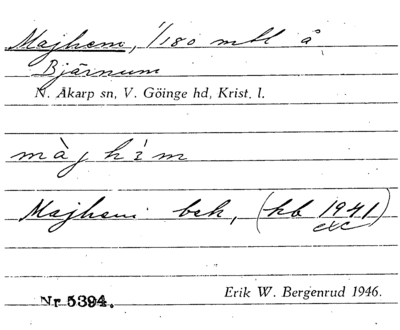 Majhem, 1/180 mtl å
Bjärnum
N. Åkarp sn, V. Göinge hd, Krist. l.
màjhèm
Majhem bek, (kb 1941)
exc
Nr 5394. Erik W. Bergenrud 1946.